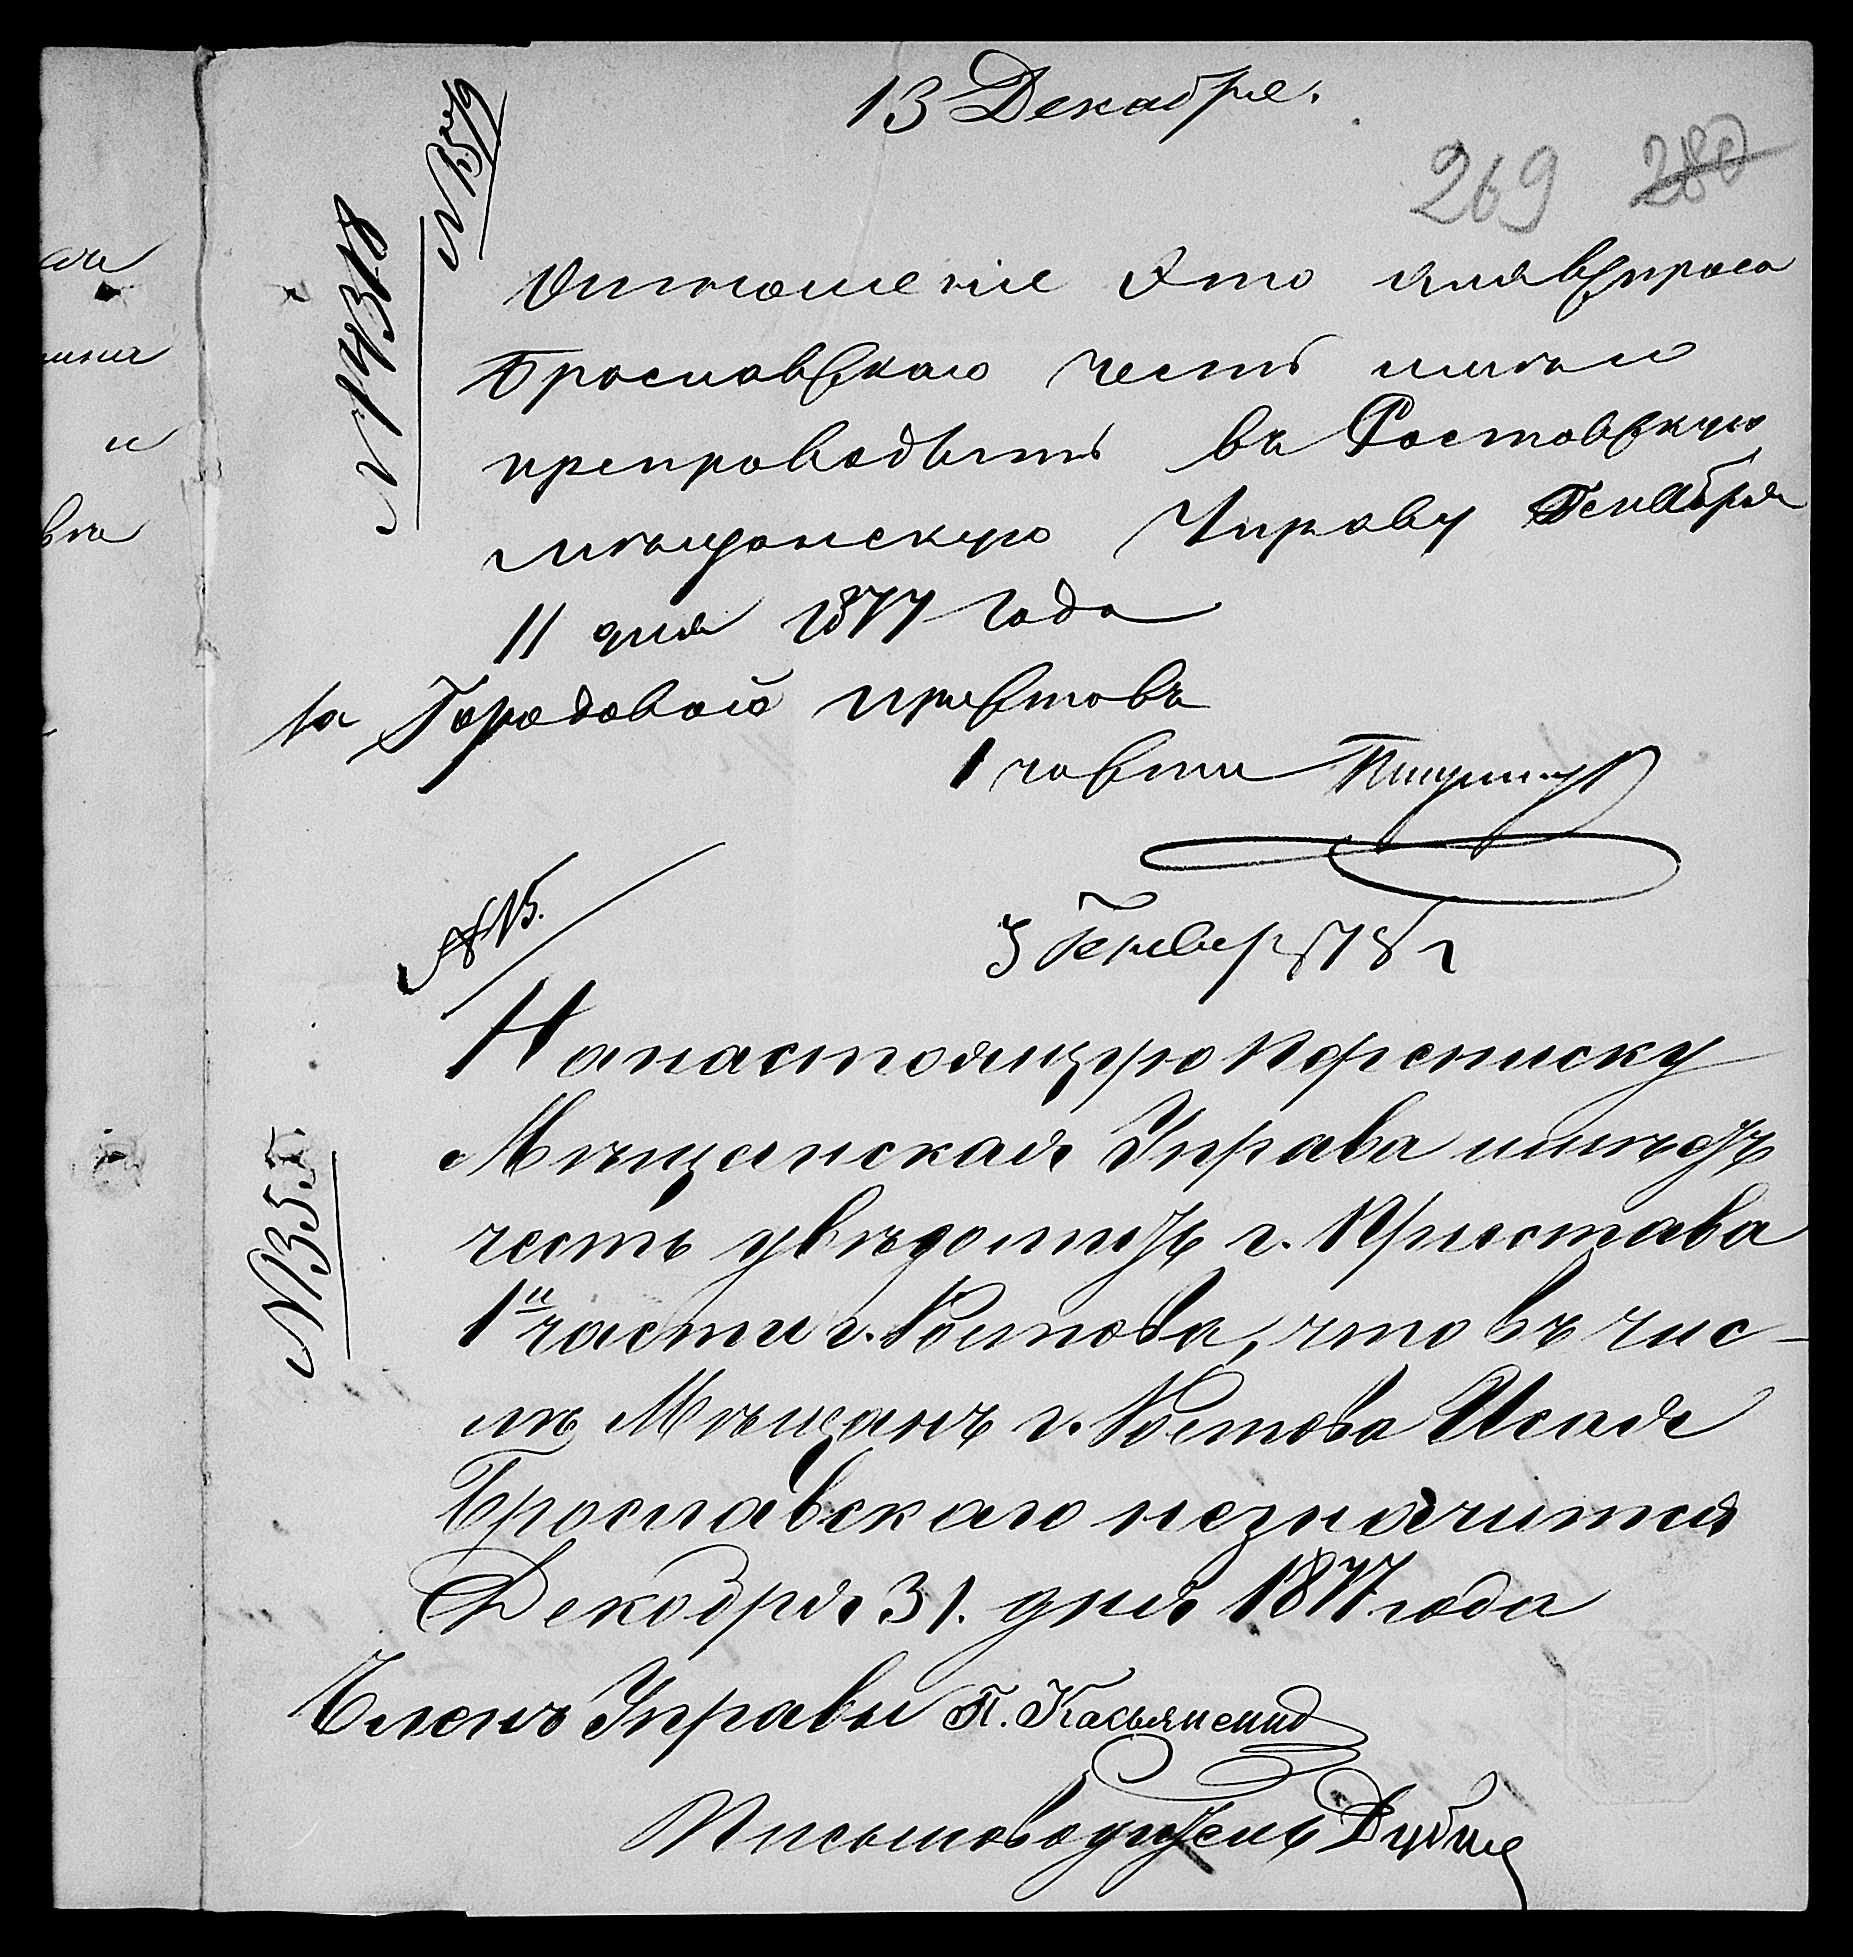 13 Декабря.
269 280
№ 14318
Отношеніе это для вопроса
Брославскаго честь имѣю
препроводить въ Ростовскую
мѣщанскую Управу Декабря
11 дня 1877 года
За Городоваго пристава
1 части
№ 13.
3 Генваря 78 г
На настоящую переписку
Мѣщанская Управа имѣетъ
честь увѣдомить г. Пристава
1й части г. Ростова, что въ чис-
лѣ Мѣщанъ г. Ростова Исаия
Брославскаго незначится
Декабря 31. дня 1877 года
№ 35
Членъ Управы П. Касьяненко
Письмоводитель